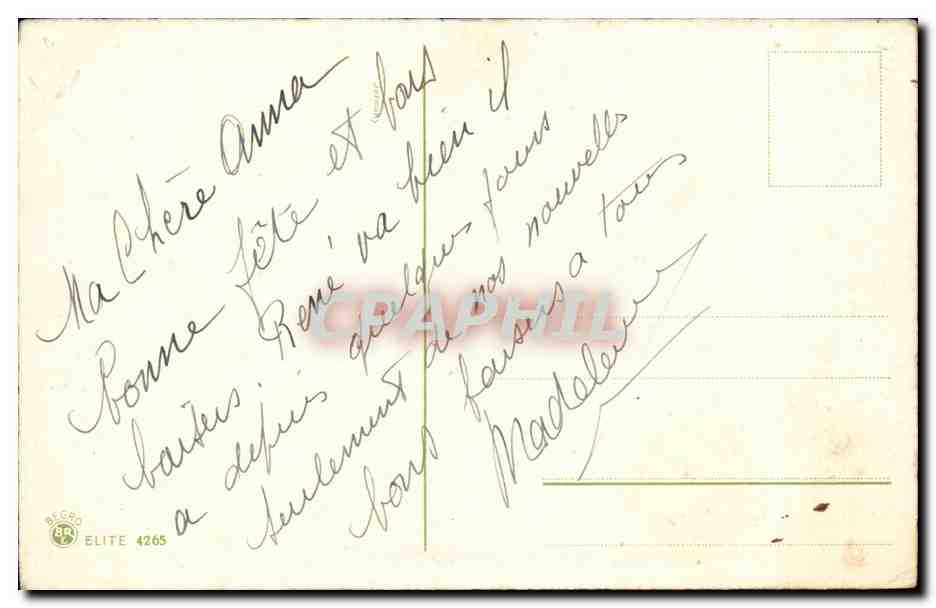 Ma Chère Anna
Bonne fête et bons
baisers. René va bien il
a depuis quelques jours
seulement de nos nouvelles
bons baisers a tous
Madeleine
CPAPHIL
BEGRO
ELITE 4265